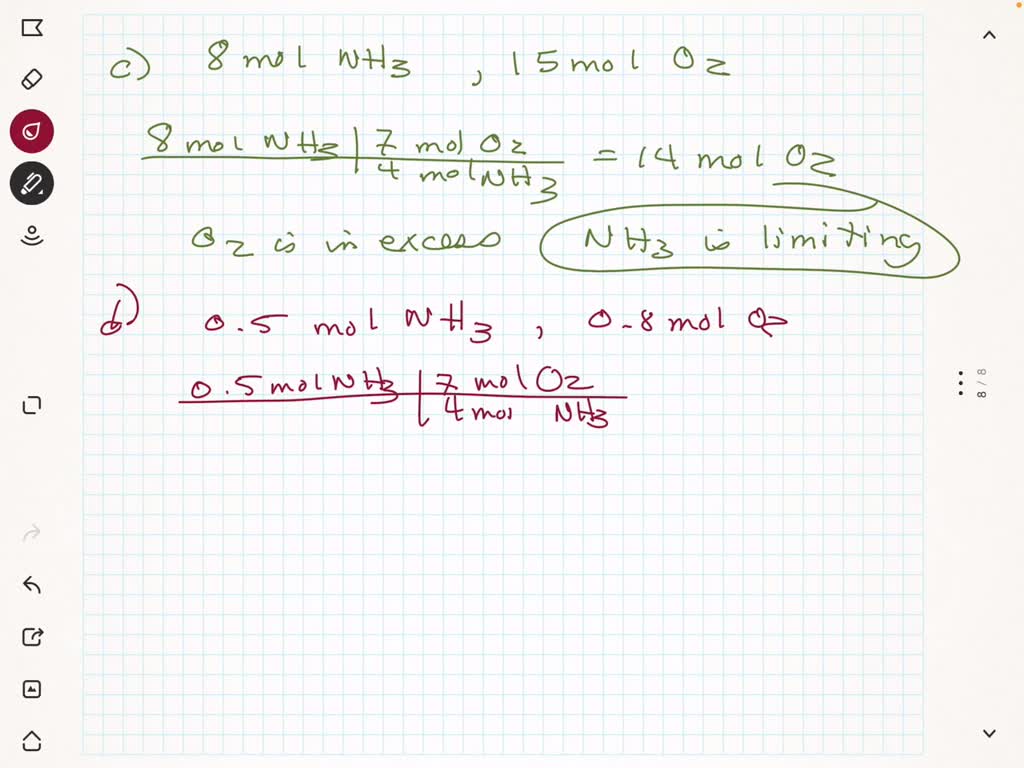 c) 8 mol NH3 , 15 mol O2
8 mol NH3 | 7 mol O2
4 mol NH3 = 14 mol O2
O2 is in excess NH3 is limiting
d) 0.5 mol NH3 , 0.8 mol O2
0.5 mol NH3 | 7 mol O2
4 mol NH3
8/8